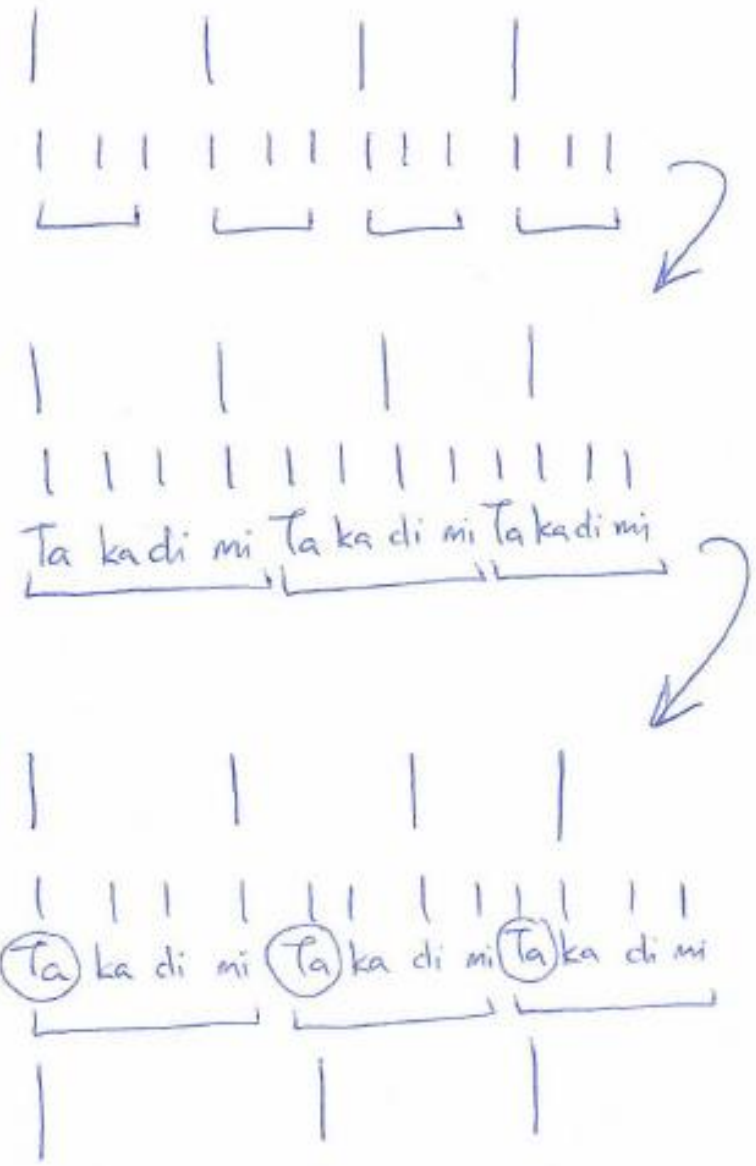 Ta ka di mi Ta ka di mi Ta ka di mi
Ta ka di mi Ta ka di mi Ta ka di mi